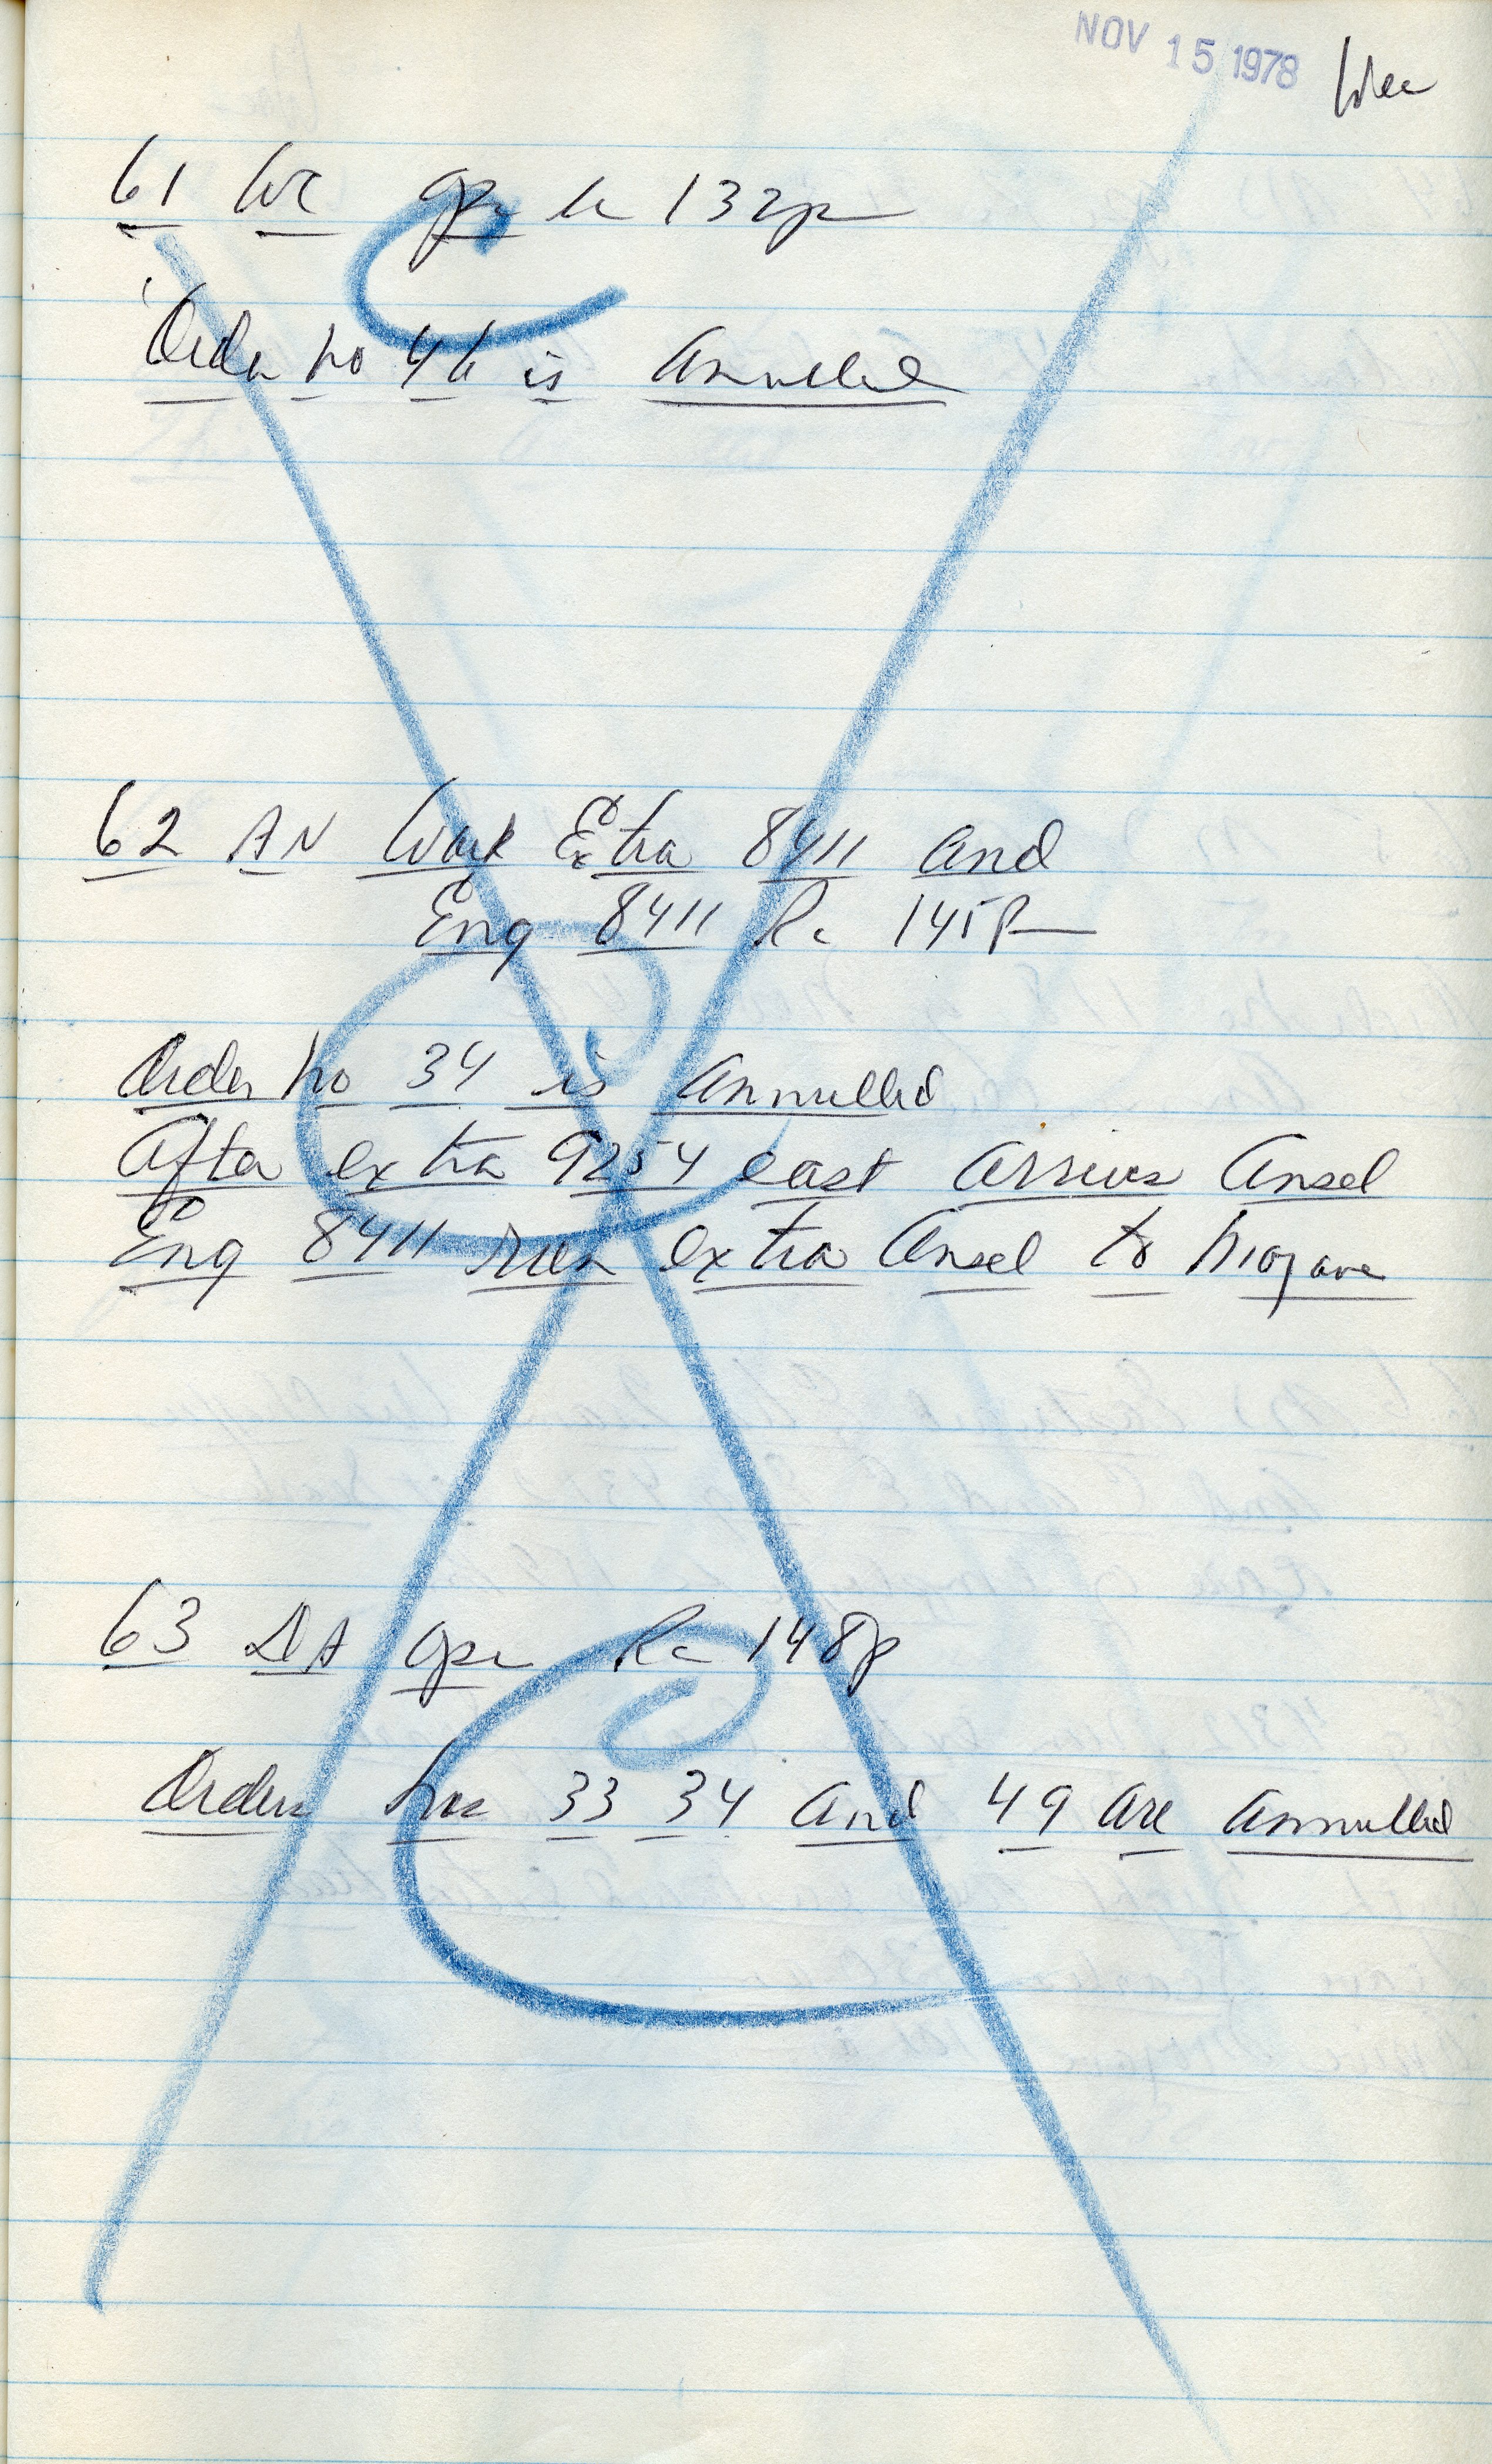 NOV 15 1978
61 WC Opr 132p
Order No 46 is Annulled
62 AN Work Extra 8411 and
Eng 8411 Rc 145P
Order No 34 is annulled
After extra 9254 east arrives Ansel
Eng 8411 run extra Ansel to Mojave
63 DA Opr Rc 148p
Orders Nos 33 34 and 49 are annulled